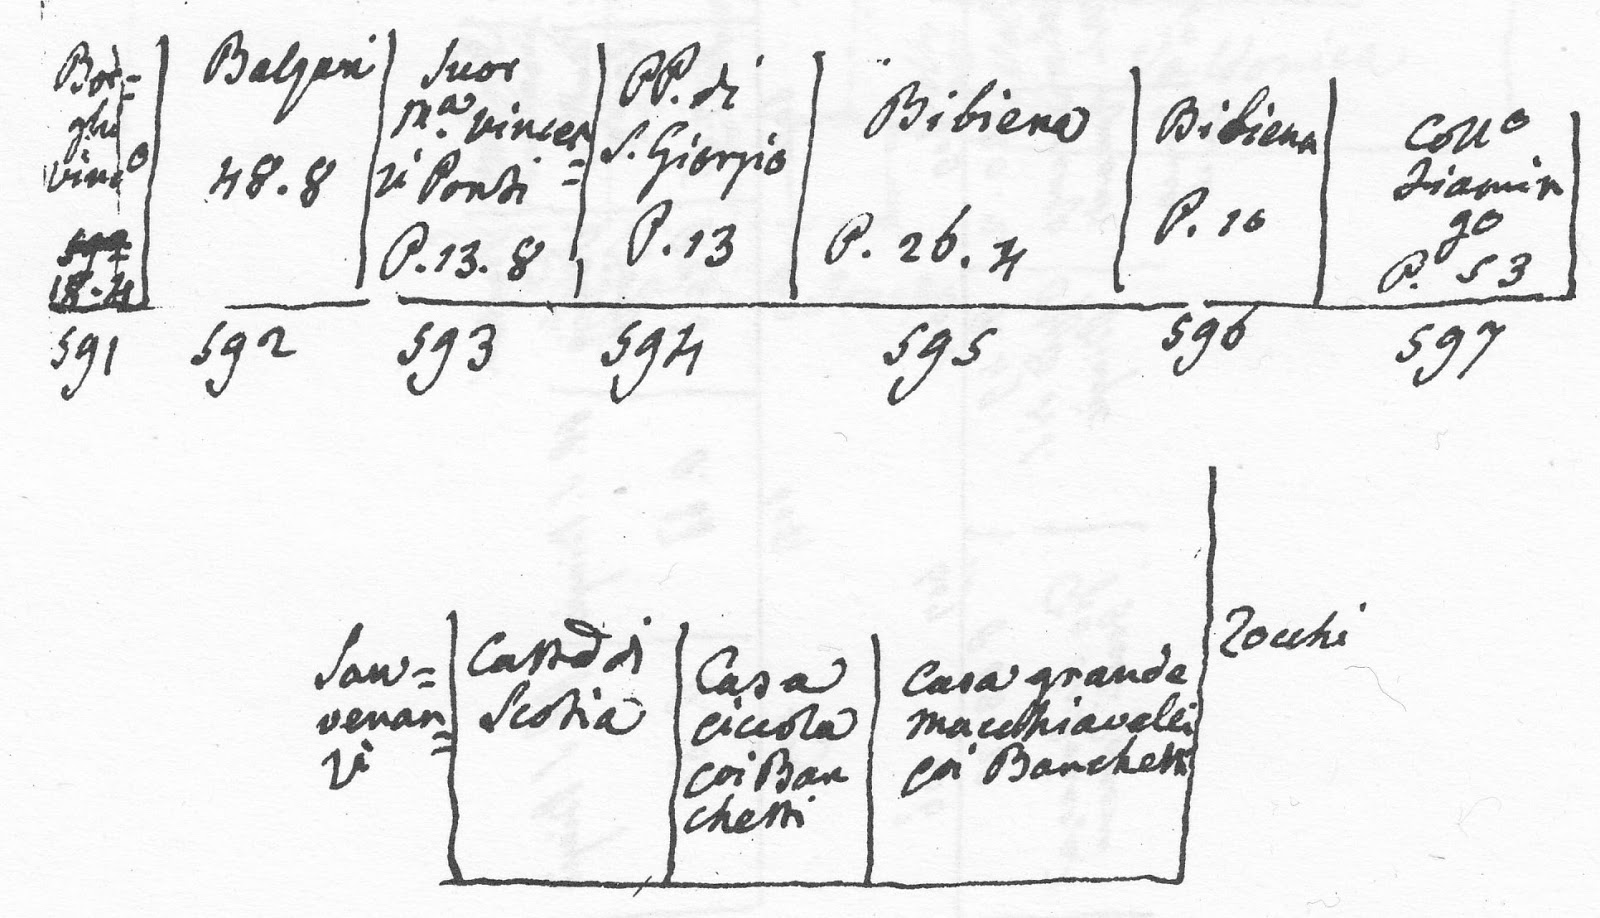 Bor=
ghi
vinc.o
18-4
591
Balzani
48.8
592
Suor
M.a vincen
zi Ponti =
P. 13. 8
593
PP. di
S. Giorgio
P. 13
594
Bibiena
P. 26. 4
595
Bibiena
P. 10
596
Coll.o
Fiamin
go
P. 53
597
San=
venan
=
zi
Casa di
Scotia
Casa
piccola
poi Ban
chetti
Casa grande
macchiavelli
poi Banchetti
Zocchi